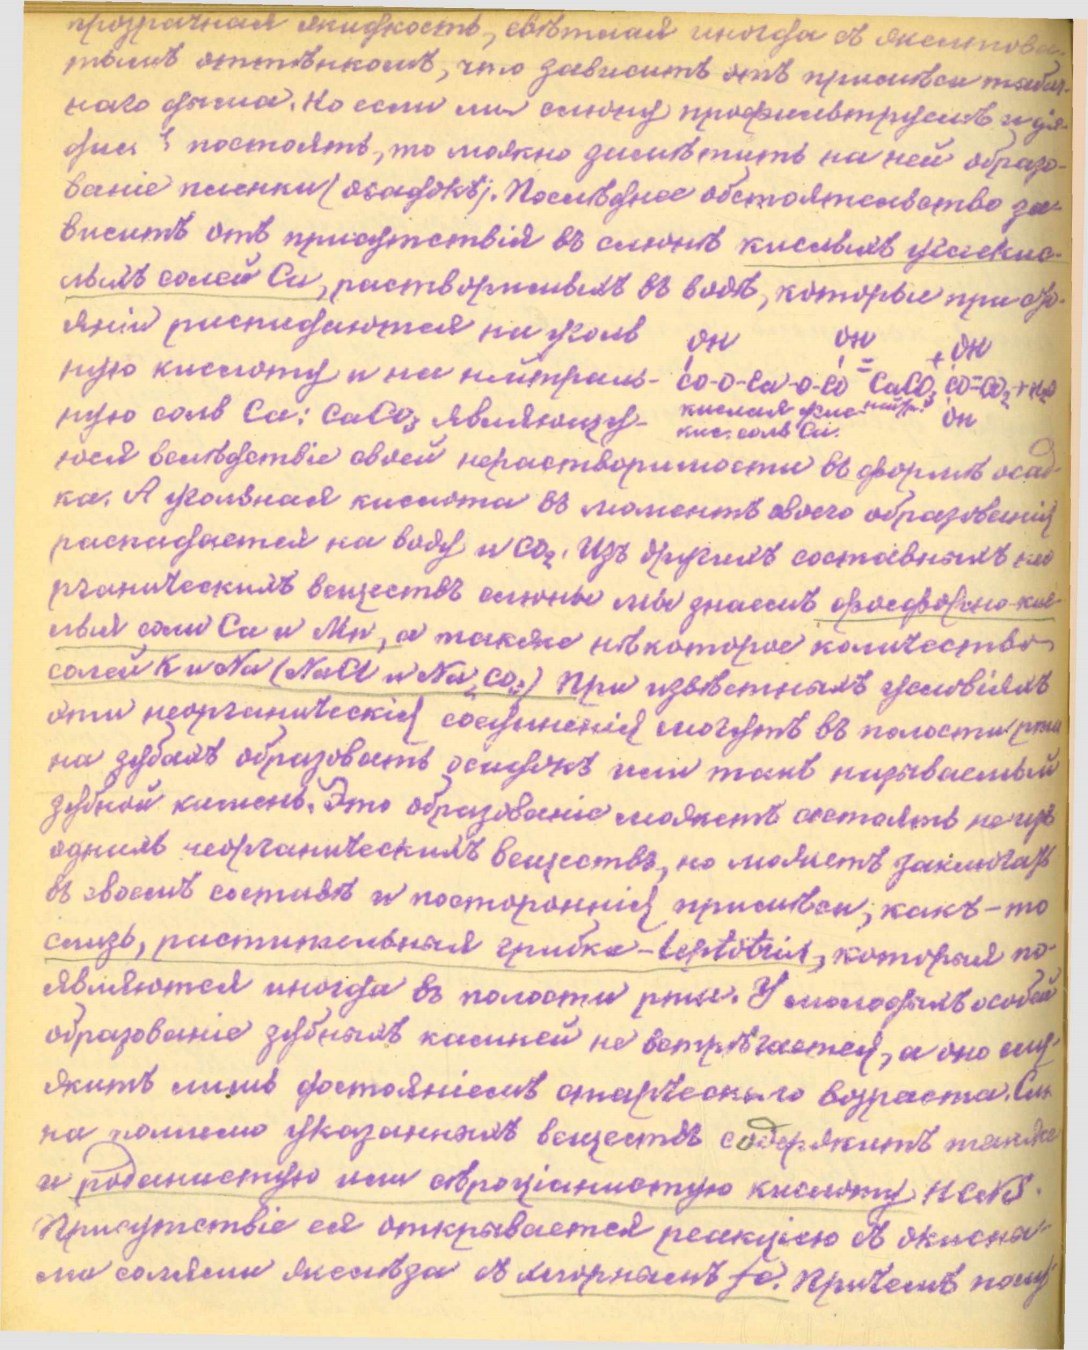 прозрачная жидкость, свѣтлая иногда съ желтова-
тымъ оттѣнкомъ, что зависитъ отъ примѣси табач-
наго дыма. Но если мы слюну профильтруемъ и
постоять, то можно замѣтить на ней образо-
ваніе пленки (осадокъ). Послѣднее обстоятельство за-
виситъ отъ присутствія въ слюнѣ кислыхъ углекис-
лыхъ солей Ca, растворимыхъ въ водѣ, которые при сто-
яніи распадаются на уголь
ную кислоту и на нейтраль-
ную соль Ca: CaCO3 являющу-
OH OH + OH
CO-O-Ca-O-CO = CaCO3 CO=CO2+H2O
кислая угле- нейтр. OH
кис. соль Ca.
юся вслѣдствіе своей нерастворимости въ формѣ осад-
ка. А угольная кислота въ моментъ своего образованія
распадается на воду и CO2. Изъ другихъ составныхъ нео
рганическихъ веществъ слюны мы знаемъ фосфорно-кис
лыя соли Ca и Mn, а также нѣкоторое количество
солей K и Na (NaCl и Na2CO3) При извѣстныхъ условіяхъ
эти неорганическія соединенія могутъ въ полости рта
на зубахъ образовать осадокъ или такъ называемый
зубной камень. Это образованіе можетъ состоять не изъ
однихъ неорганическихъ веществъ, но можетъ заключать
въ своемъ составѣ и постороннія примѣси, какъ-то
слизь, растительныя грибка-leptotrix, которыя по-
являются иногда въ полости рта. У молодыхъ особей
образованіе зубныхъ камней не встрѣчается, а оно слу-
житъ лишь достояніемъ старческаго возраста. Слю
на помимо указанныхъ веществъ содержитъ также
и роданистую или сѣроціанистую кислоту HCNS.
Присутствіе ея открывается реакціею съ окисны-
ми солями желѣза съ хлорнымъ fe. Причемъ полу